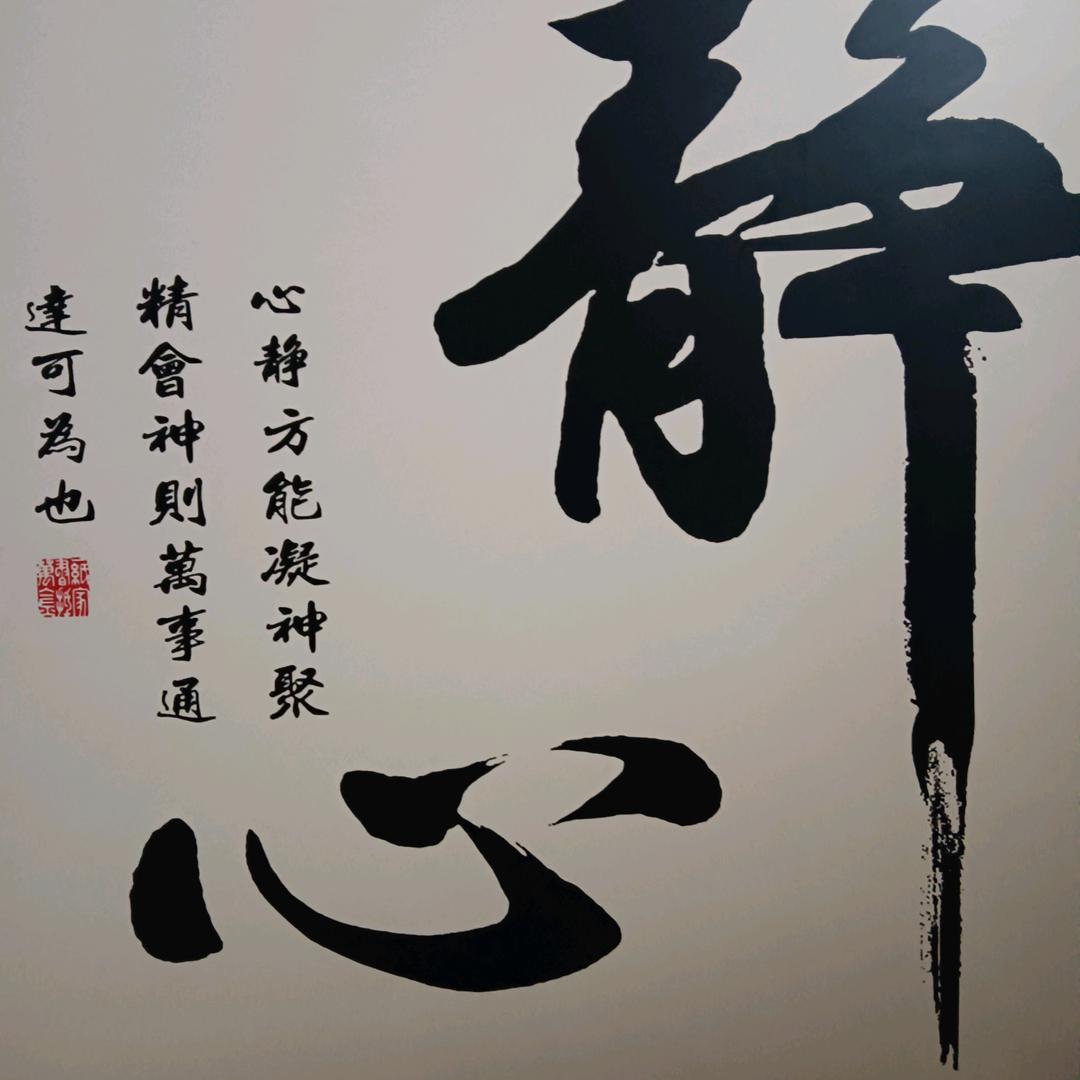 靜
心
心静方能凝神聚
精會神則萬事通
達可為也